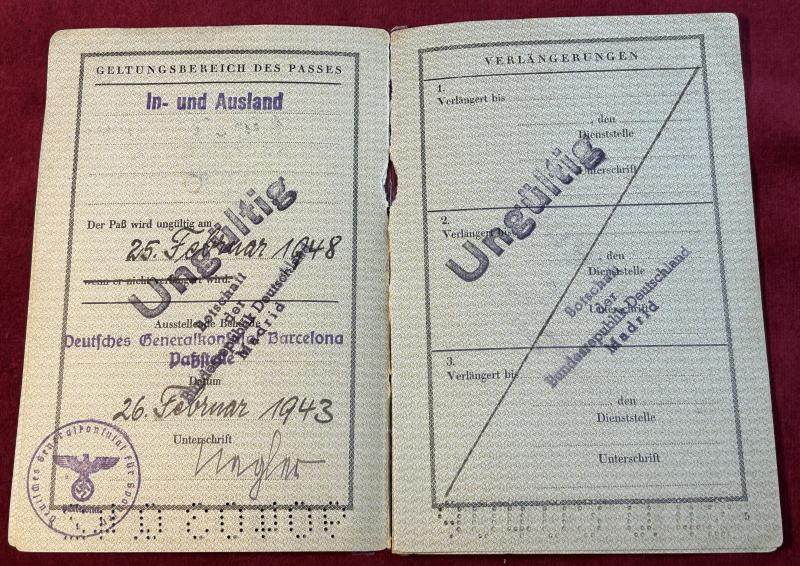 GELTUNGSBEREICH DES PASSES
In- und Ausland
Der Paß wird ungültig am
25. Februar 1948
wenn er nicht verlängert wird.
Ungültig
Botschaft
der
Bundesrepublik Deutschland
Madrid
Ausstellende Behörde
Deutsches Generalkonsulat Barcelona
Paßstelle
Datum
26. Februar 1943
Unterschrift
Deutsches Generalkonsulat für
VERLÄNGERUNGEN
1.
Verlängert bis
, den
Dienststelle
Unterschrift
Ungültig
2.
Verlängert bis
, den
Dienststelle
Unterschrift
Botschaft
der
Bundesrepublik Deutschland
Madrid
3.
Verlängert bis
, den
Dienststelle
Unterschrift
5